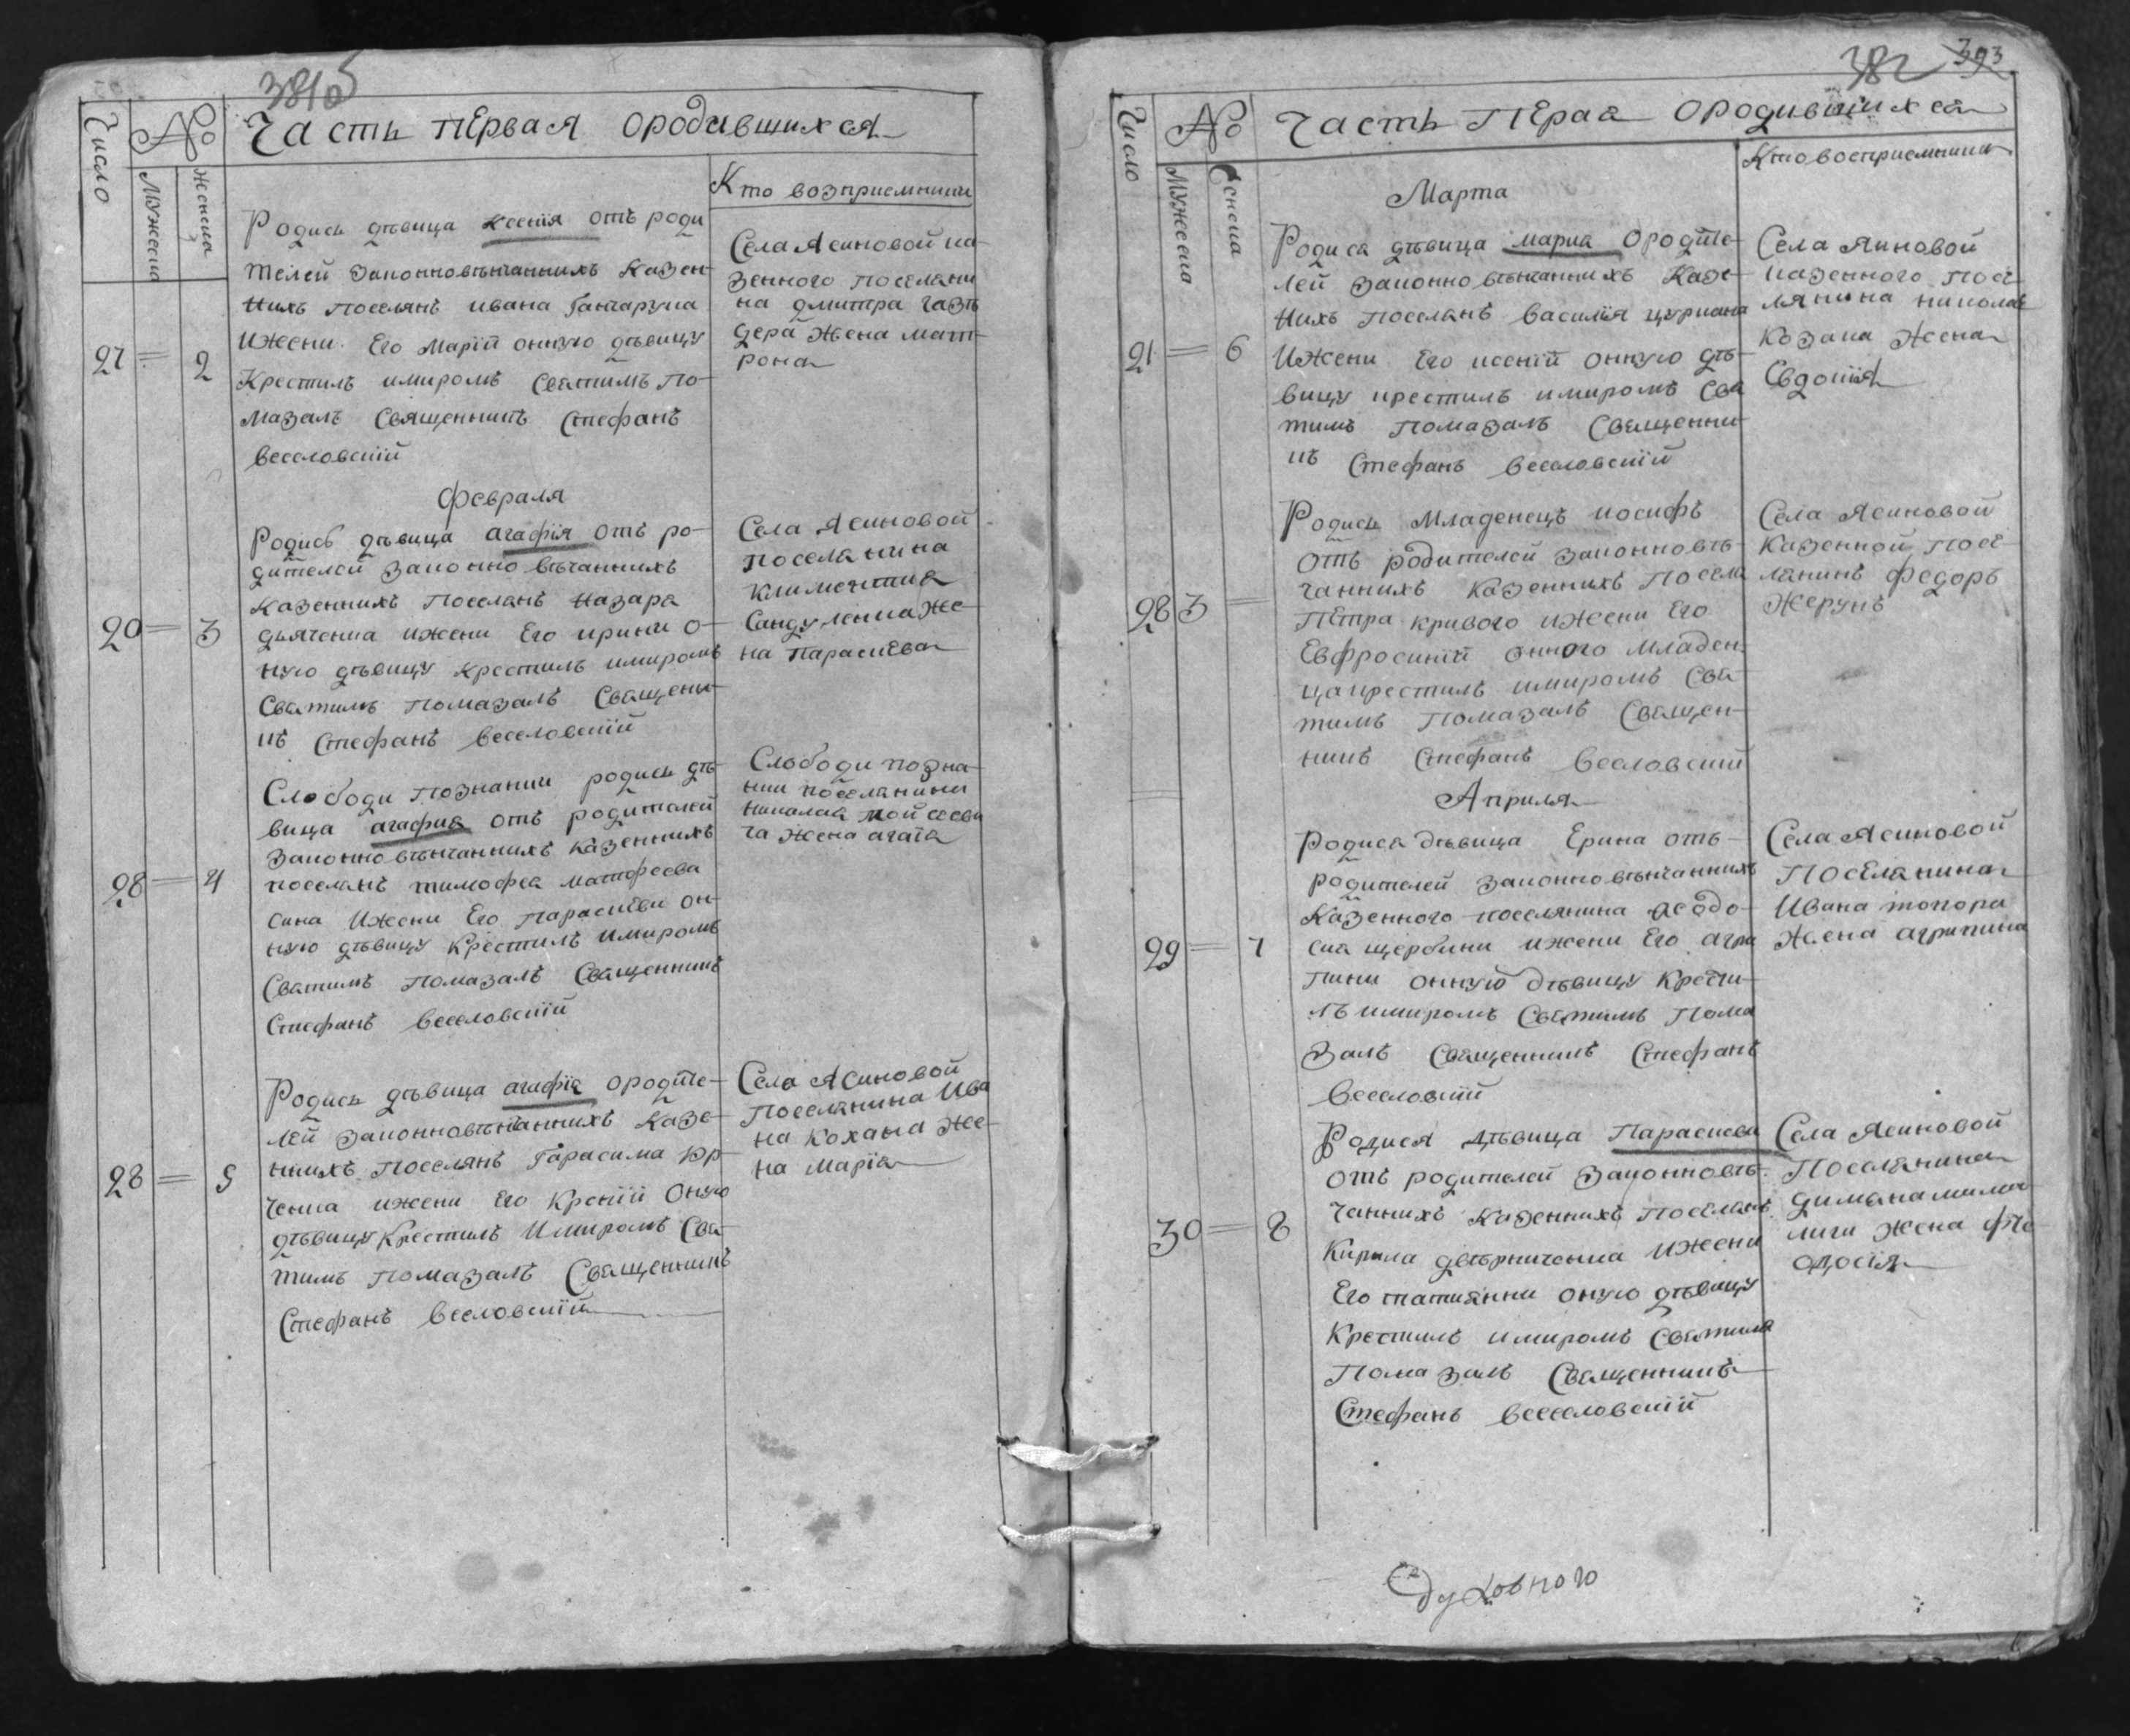 381об
Часть ПЕрвая ородившихся
Число
№
Мужеска
Женска
Кто возприемники
Родись дѣвица Ксения отъ роди
телей законновѣнчаннихъ Казен
нихъ Поселянъ ивана Ганчарука
ижени Его Марїи онную дѣвицу
Крестилъ имиромъ Святимъ По-
мазалъ Священникъ Стефанъ
Веселовскій
27 = 2
Села Ясиновой ка-
зенного поселяни
на дмитра газѣ
дера жена мат-
рона
Февраля
Родись дѣвица агафїя отъ ро-
дителей законно вѣчаннихъ
Казеннихъ Поселянъ Назара
дяченка ижени Его ирини о-
ную дѣвицу крестилъ имиромъ
Святимъ помазалъ Священи-
къ Стефанъ Веселовскій
20 = 3
Села Ясиновой
поселянина
климентия
Сандуленка Же-
на параскева
Слободи Познанки родись дѣ-
вица агафия отъ родителей
законновѣнчаннихъ казеннихъ
поселянъ тимофея матфеева
сина Ижени Его Параскеви он-
ную дѣвицу Крестилъ имиромъ
Святимъ Помазалъ Священникъ
Стефанъ Веселовскій
28 = 4
Слободи позна-
нки поселянини
николая мойсееви
ча жена агаїя
Родись дѣвица агафїя ородите-
лей законновѣнчаннихъ Казе-
нихъ Поселянъ Гарасима Юр-
ченка ижени Его Ксенїи оную
дѣвицу Крестилъ Имиромъ Свя-
тимъ помазалъ Священникъ
Стефанъ Веселовскій
28 = 5
Села Ясиновой
Поселянина Ива
на Кохана Же-
на Марїя
382 393
Часть ПЕрая ородившихся
Число
№
Мужеска
Женска
Кто восприемники
Марта
Родися дѣвица мария ородите-
лей законновѣнчаннихъ Казе-
нихъ поселянъ василїя цуркана
Ижени Его ксенїй онную дѣ-
вицу крестилъ имиромъ Свя
тимъ помазалъ Священни-
къ Стефанъ Веселовскїй
21 = 6
Села Яиновой
казенного Посе-
лянина николая
Козака жена
Евдокїя
Родись Младенецъ иосифъ
отъ родителей законновѣ-
чаннихъ Казеннихъ Поселя
ПЕтра кривого ижени Его
Евфросинїй онного Младен
ца крестилъ имиромъ Свя-
тимъ Помазалъ Священ-
никъ Стефанъ Веселовскій
28 3 =
Села Ясиновой
Казенной посе-
лянинъ федоръ
Жерунъ
Априля
Родися дѣвица Ерина отъ-
родителей законновѣнчаннихъ
Казенного поселянина Феодо-
сия щербини ижени Его агри
пини онную дѣвицу крести-
лъ имиромъ Святимъ Пома
залъ Священникъ Стефанъ
Веселовскїй
29 = 7
Села Ясиновой
Поселянина
Ивана топора
Жена агрипина
Родися дѣвица Параскева
отъ родителей законновѣ-
чаннихъ казеннихъ поселянъ
Кирила ижени
Его татиянни оную дѣвицу
Крестилъ имиромъ святимъ
Помазалъ Священникъ
Стефанъ Веселовскїй
30 = 8
Села Ясиновой
Поселянина
димяна
жена фте
одосїя
Духовного